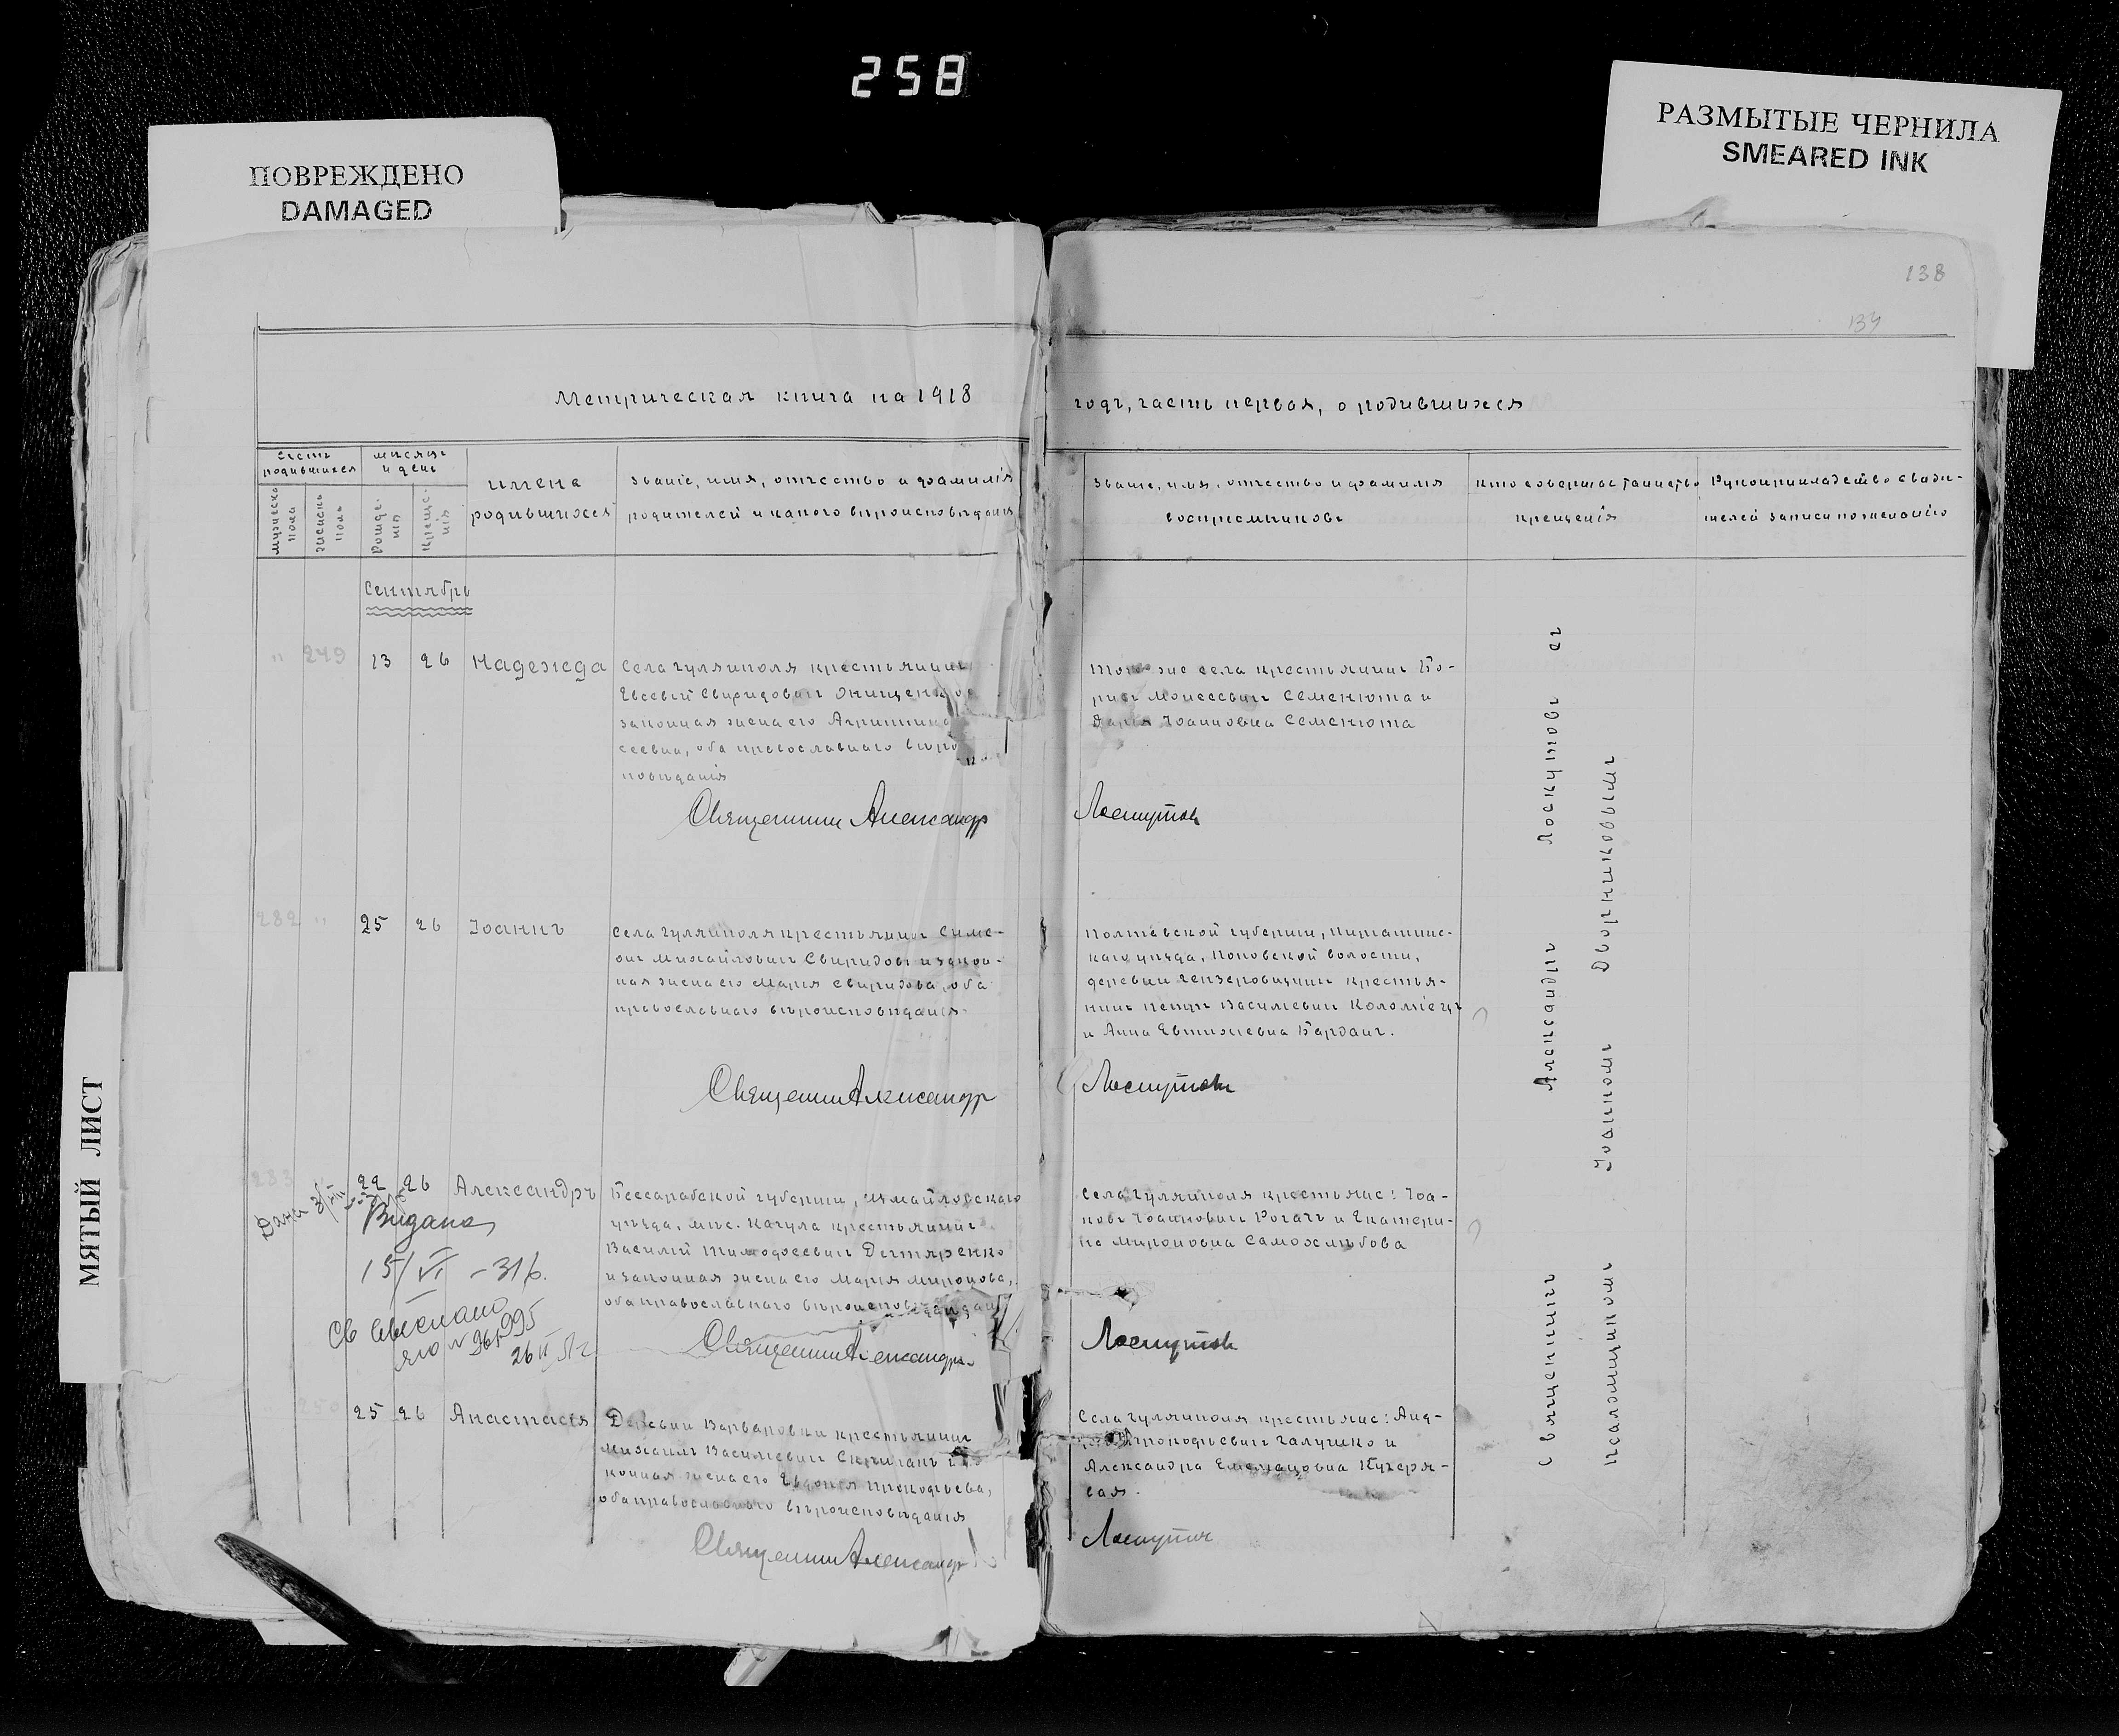 258
ПОВРЕЖДЕНО
DAMAGED
РАЗМЫТЫЕ ЧЕРНИЛА
SMEARED INK
МЯТЫЙ ЛИСТ
138
134
Метрическая книга на 1918
годъ, часть первая, о родившихся
Счетъ родившихся
мужеска пола
женска пола
мѣсяцъ и день
рожденія
крещенія
имена
родившихся
Званіе, имя, отчество и фамилія
родителей и какого вѣроисповѣданія
Званіе, имя, отчество и фамилія
воспріемниковъ
кто совершалъ таинство
крещенія
Рукоприкладство свидѣ-
телей записи по желанію
Сентябрь
" 249 13 26 Надежда
Села Гуляйполя крестьянинъ
Евсевій Свиридовичъ Онищенко
законная жена его Агриппина
сеевна, оба православнаго вѣро
повѣданія
Тогоже села крестьянинъ Бо-
рисъ Моисеевичъ Семенюта и
Дарія Іоанновна Семенюта
Священникъ Александръ Лоскутовъ
282 " 25 26 Іоаннъ
Села Гуляйполя крестьянинъ Симе-
онъ Михайловичъ Свиридовъ и закон-
ная жена его Марія Свиридова, оба
православнаго вѣроисповѣданія.
Полтавской губерніи, Пирятинс-
каго уѣзда, Поповской волости,
деревни крестья-
нинъ Петръ Василіевичъ Коломіецъ
и Анна Евтихіевна Барданъ.
Священникъ Александръ Лоскутовъ
283 22 26 Александръ
Бессарабской губерніи, Измайловскаго
уѣзда, мѣс. Кагула крестьянинъ
Василій Тимофеевичъ Дегтяренко
и законная жена его Марія Миронова,
оба православнаго
Села Гуляйполя крестьяне: Іоа-
новъ Іоанновичъ Рогачъ и Екатери-
на Мироновна Самохлѣбова
Видана
15/VI - 31 б.
Св выслано
ЯЮ № 965995
26 II 51 г.
Священникъ Александръ Лоскутовъ
25 26 Анастасія
Деревни Варваровки крестьянинъ
Михаилъ Василіевичъ
конная жена его Евдокія Прокофьева,
оба православнаго вѣроисповѣданія
Села Гуляйполя крестьяне: Анд-
Прокофьевичъ Галушко и
Александра Кучеря-
вая.
Священникъ Александръ Лоскутовъ
Священникъ Александръ Лоскутовъ съ
псаломщикомъ Іоанномъ Дворниковымъ